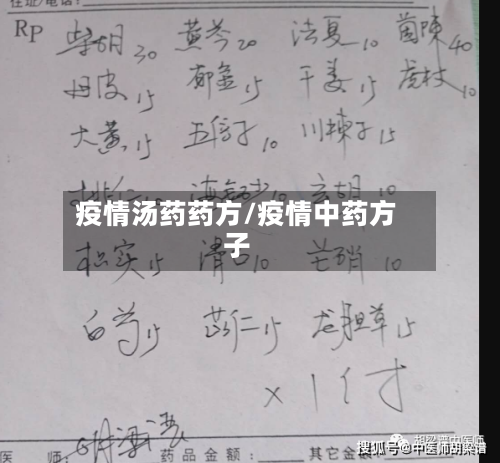 住址/电话:
Rp 柴胡30 黄芩20 法夏10 茵陈40
丹皮15 郁金15 干姜15 虎杖10
大黄15 五倍子10 川楝子15
疫情汤药药方/疫情中药方
子
枳实15 滑石10 芒硝10
白芍15 苡仁15 龙胆草15
×1付
医师: 药品金额: 其它金额
胡梁谱中医师
搜狐号@中医师胡梁谱